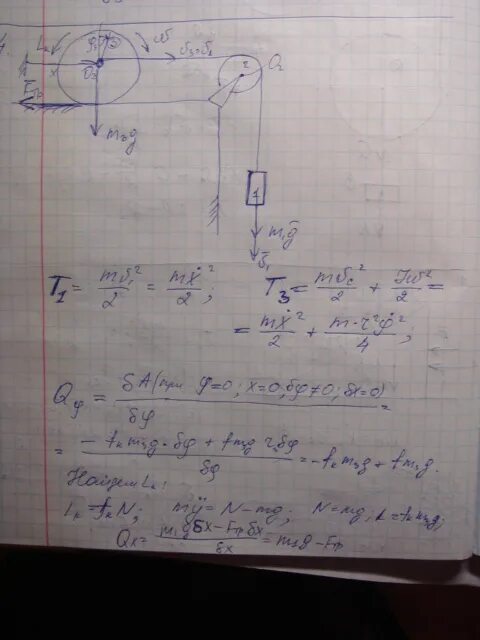 L_к φ_3 ω
υ_3=υ_1
O_3
O_2
2
F_тр
m_3g
1
m_1g
υ_1
T_1 = mυ_1²/2 = mẋ²/2; T_3 = mυ_c²/2 + Jω²/2 =
= mẋ²/2 + m·r²φ̇²/4;
Q_φ = δA(при φ=0; x=0, δφ≠0; δx=0)/δφ =
= (-f_к m_3g·δφ + f m_3g r δφ)/δφ = -f_к m_3g + f m_3g.
Найдем L_к:
L_к = f_к N; mÿ = N - mg; N = mg; L = f_к m_3g;
Q_x = (m_1g δx - F_тр δx)/δx = m_1g - F_тр